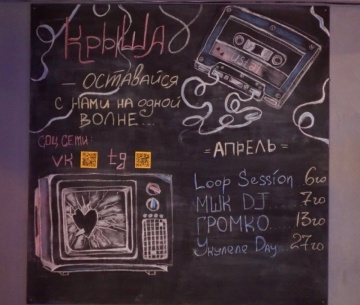 КРЫША
— ОСТАВАЙСЯ
С НАМИ НА ОДНОЙ
ВОЛНЕ...
СОЦ СЕТИ
vk tg
= АПРЕЛЬ =
Loop Session 6го
МШК DJ 7го
ГРОМКО 13го
Укулеле Day 27го